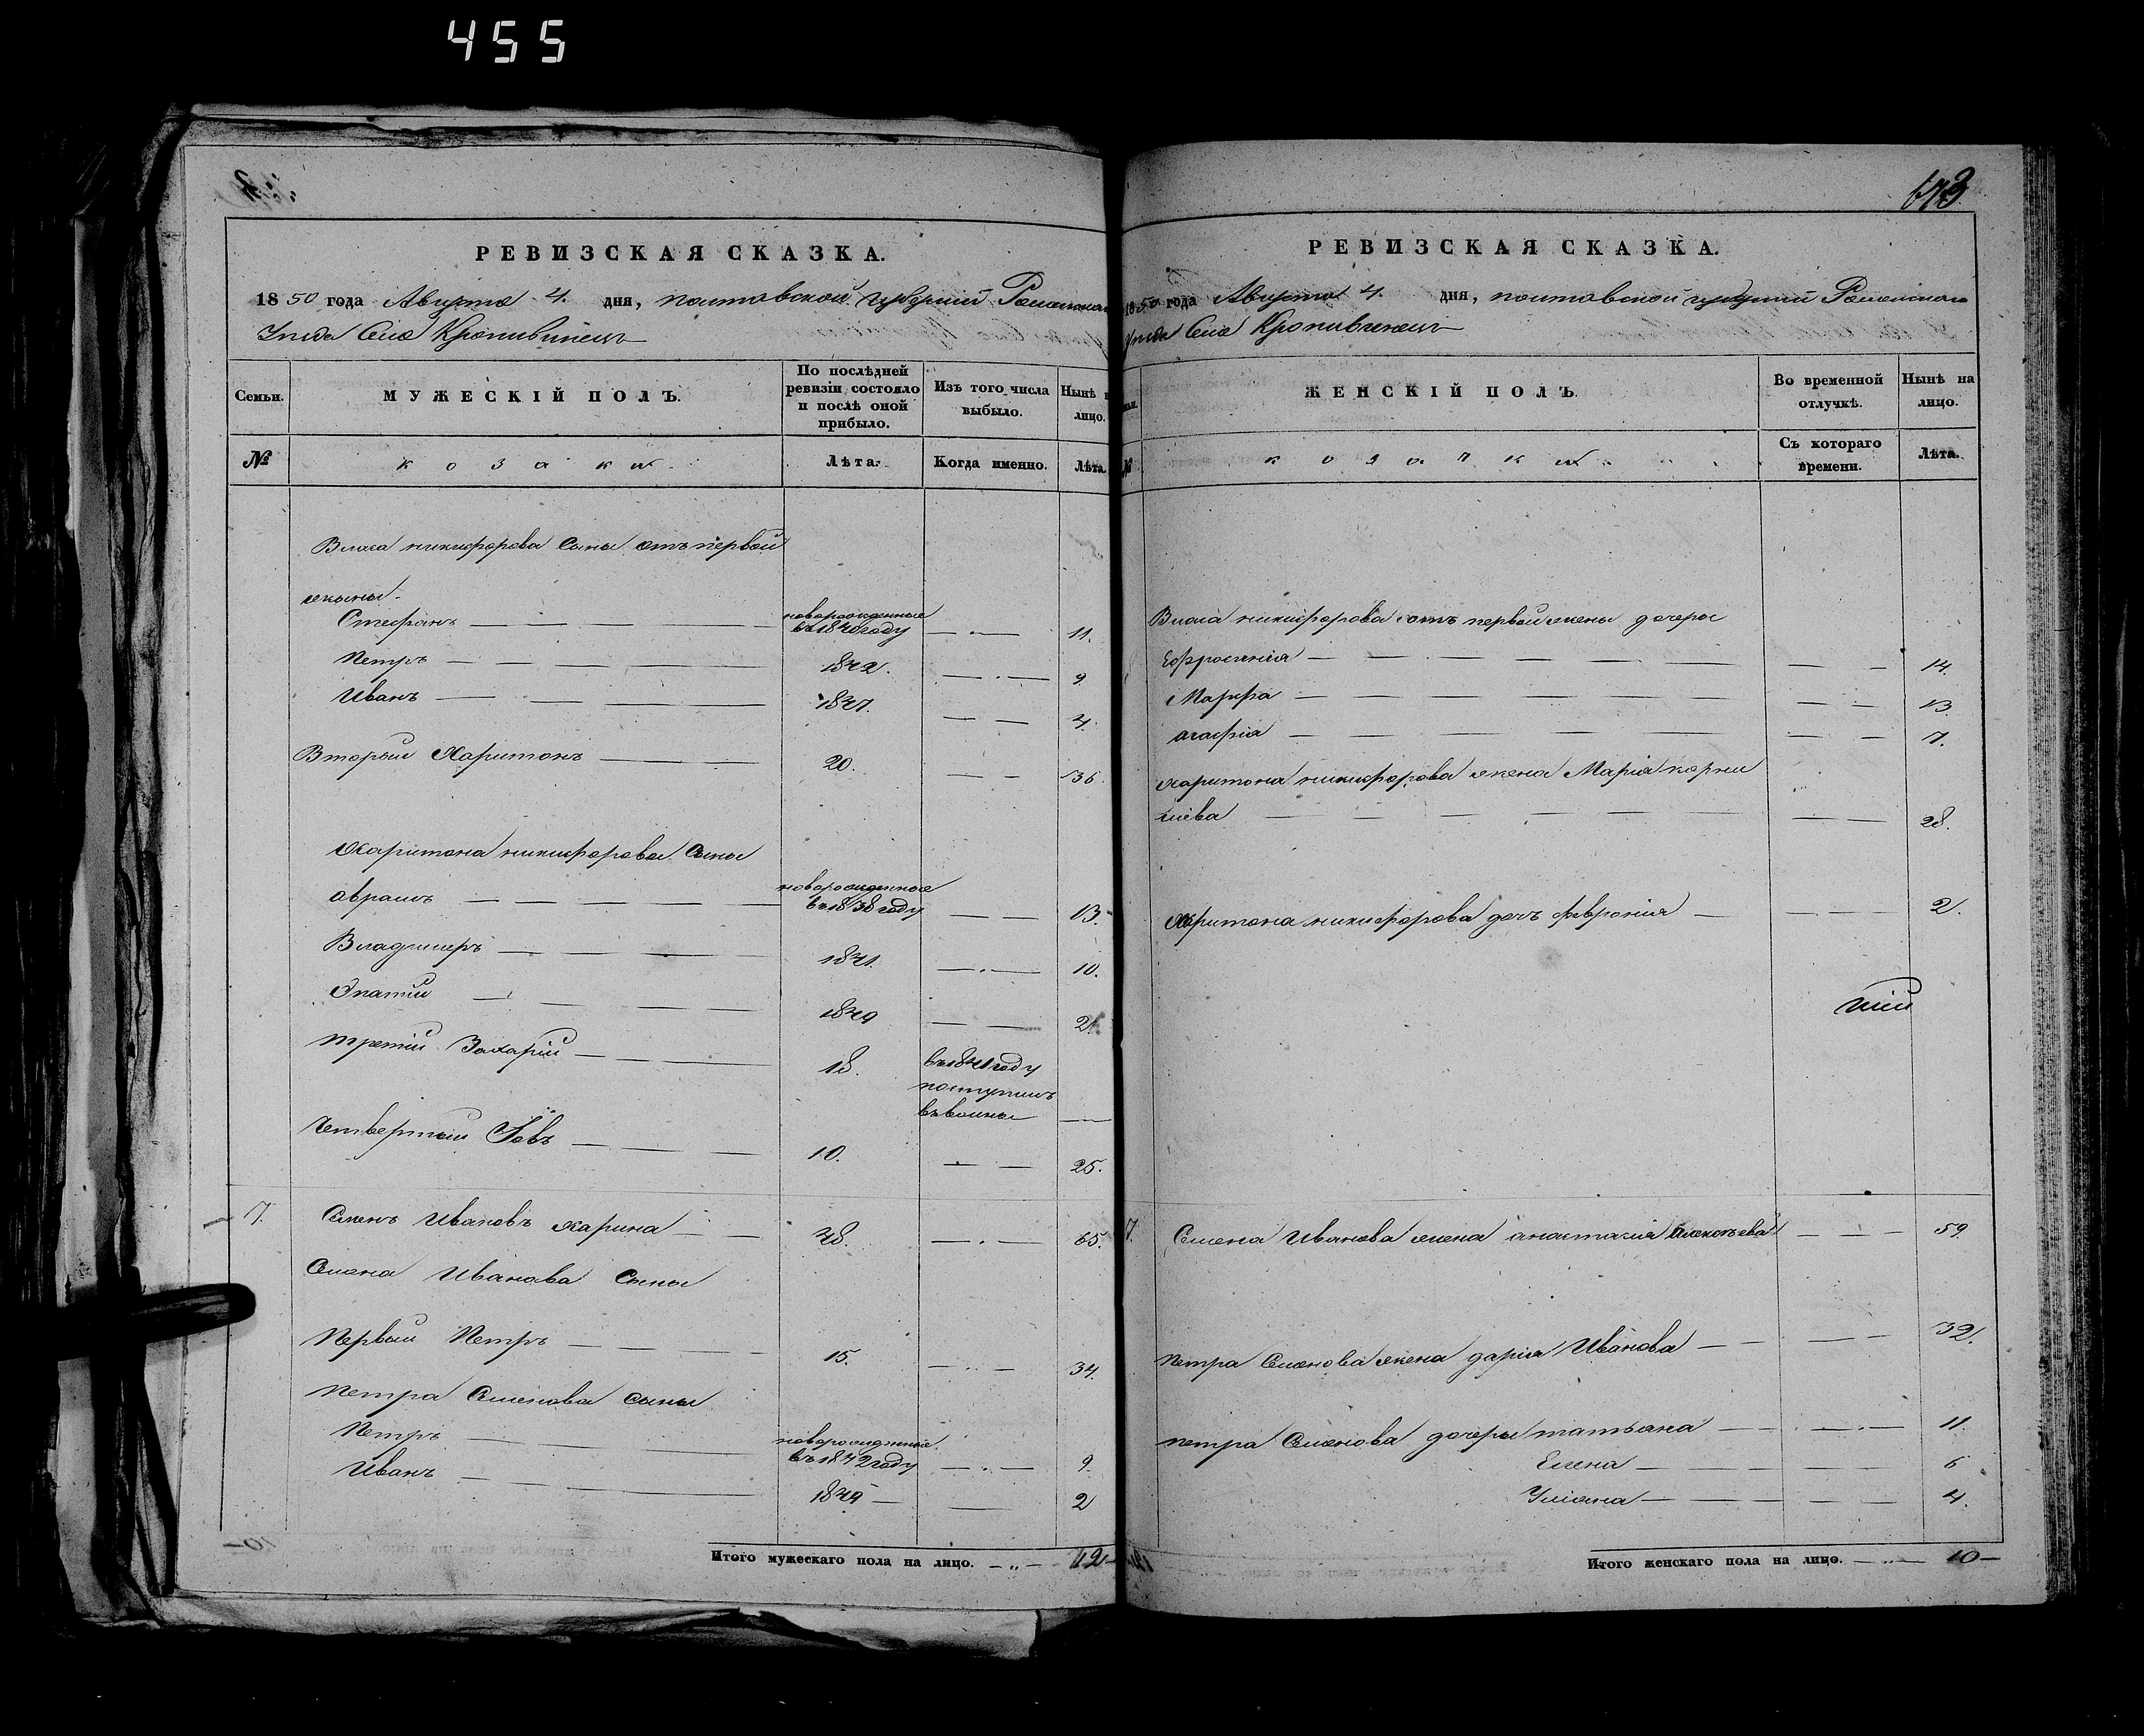 455
РЕВИЗСКАЯ СКАЗКА.
1850 года Августа 4. дня, полтавской губерніи Роменскаго
Уезда Села Кропивинецъ
Семьи.
МУЖЕСКІЙ ПОЛЪ.
По послѣдней ревизіи состояло и послѣ оной прибыло.
Изъ того числа выбыло.
Нынѣ н лицо.
№
козаки
Лѣта.
Когда именно.
Лѣта.
Власа никифорова Сыны отъ первой
жены
Стефанъ новорожденные въ 1840 году 11.
Петръ 1842. 9
Иванъ 1847. 4.
Вторый Харитонъ 20. 36.
Харитона никифорова Сыны
аврамъ новорожденные въ 1838 году 13.
Владимеръ 1841. 10.
Ипатій 1849 2.
третій Захарій 18. въ 1841 году поступилъ въ воины
Четвертый Іовъ 10. 25.
7. Семенъ Ивановъ харина 48. 65.
Семена Иванова Сыны
Первый Петръ 15. 34.
Петра Семенова сыны
Петръ новорожденные въ 1842 году 9
Иванъ 1849 2
Итого мужескаго пола на лицо. 12
673
РЕВИЗСКАЯ СКАЗКА.
1850 года Августа 4. дня, полтавской губерніи Роменскаго
Уезда Села Кропивинецъ
ЖЕНСКІЙ ПОЛЪ.
Во временной отлучкѣ.
Нынѣ на лицо.
№
козачки
Съ котораго времени.
Лѣта.
Власа никифорова отъ первой жены дочеры
Ефросинія 14.
Марфа 13
агафія 7.
харитона никифорова жена Марія корни
ліева 28.
харитона никифорова дочь февронія 2.
7. Семена Иванова жена анастасія Алексѣева 59.
Петра Семенова жена дарія Иванова 32.
петра Семенова дочеры татьяна 11.
Елена 6
Уліяна 4.
Итого женскаго пола на лицо. 10